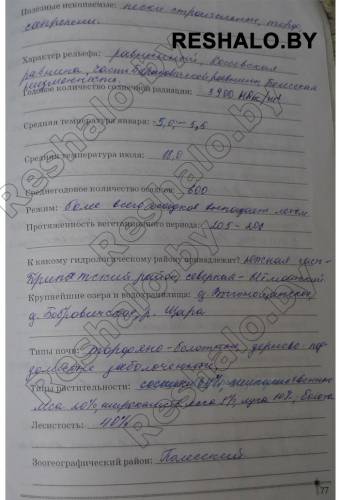 Полезные ископаемые: пески строительные, торф,
сапропели.
RESHALO.BY
Характер рельефа: равнинный, Косовская
равнина, равнина, Полесская
низменность.
Годовое количество солнечной радиации: 3900 МДж/м²
Средняя температура января: -5,0, -5,5
Средняя температура июля: 18,0
Среднегодовое количество осадков: 600
Режим: более всего осадков выпадает летом
Протяженность вегетационного периода: 205 - 208
К какому гидрологическому району принадлежит? южная часть -
Припятский район, северная - Нёманский.
Крупнейшие озера и водохранилища: Выгонощанское,
Бобровичское, р. Щара
Типы почв: торфяно-болотные, дерново-под-
золистые заболоченные.
Типы растительности:
леса 20%, луга 10%, болота
Лесистость: 40%
Зоогеографический район: Полесский
77